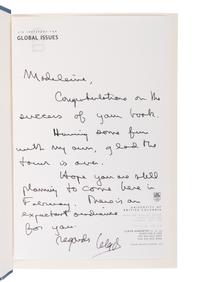 LIU INSTITUTE FOR
GLOBAL ISSUES
Madeleine,
Congratulations on the
success of your book.
Having some fun
with my own, glad the
tour is over.
Hope you are still
planning to come here in
February. There is an
expectant audience
for you.
Regards
UNIVERSITY OF
BRITISH COLUMBIA